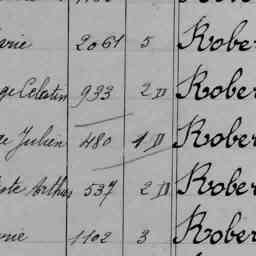 arie 2061 5 Rober
ge Celestin 933 2 D Rober
re Julien 480 1 D Rober
iste Arthur 537 2 D Rober
1102 3 Rober